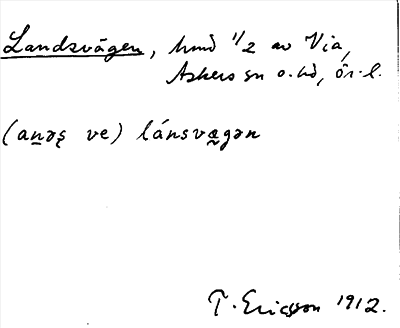 Landsvägen, hmd 1/2 av Via,
Askers sn o. hd, ör. l.
(anəs ve) lánsvægən
T. Ericsson 1912.